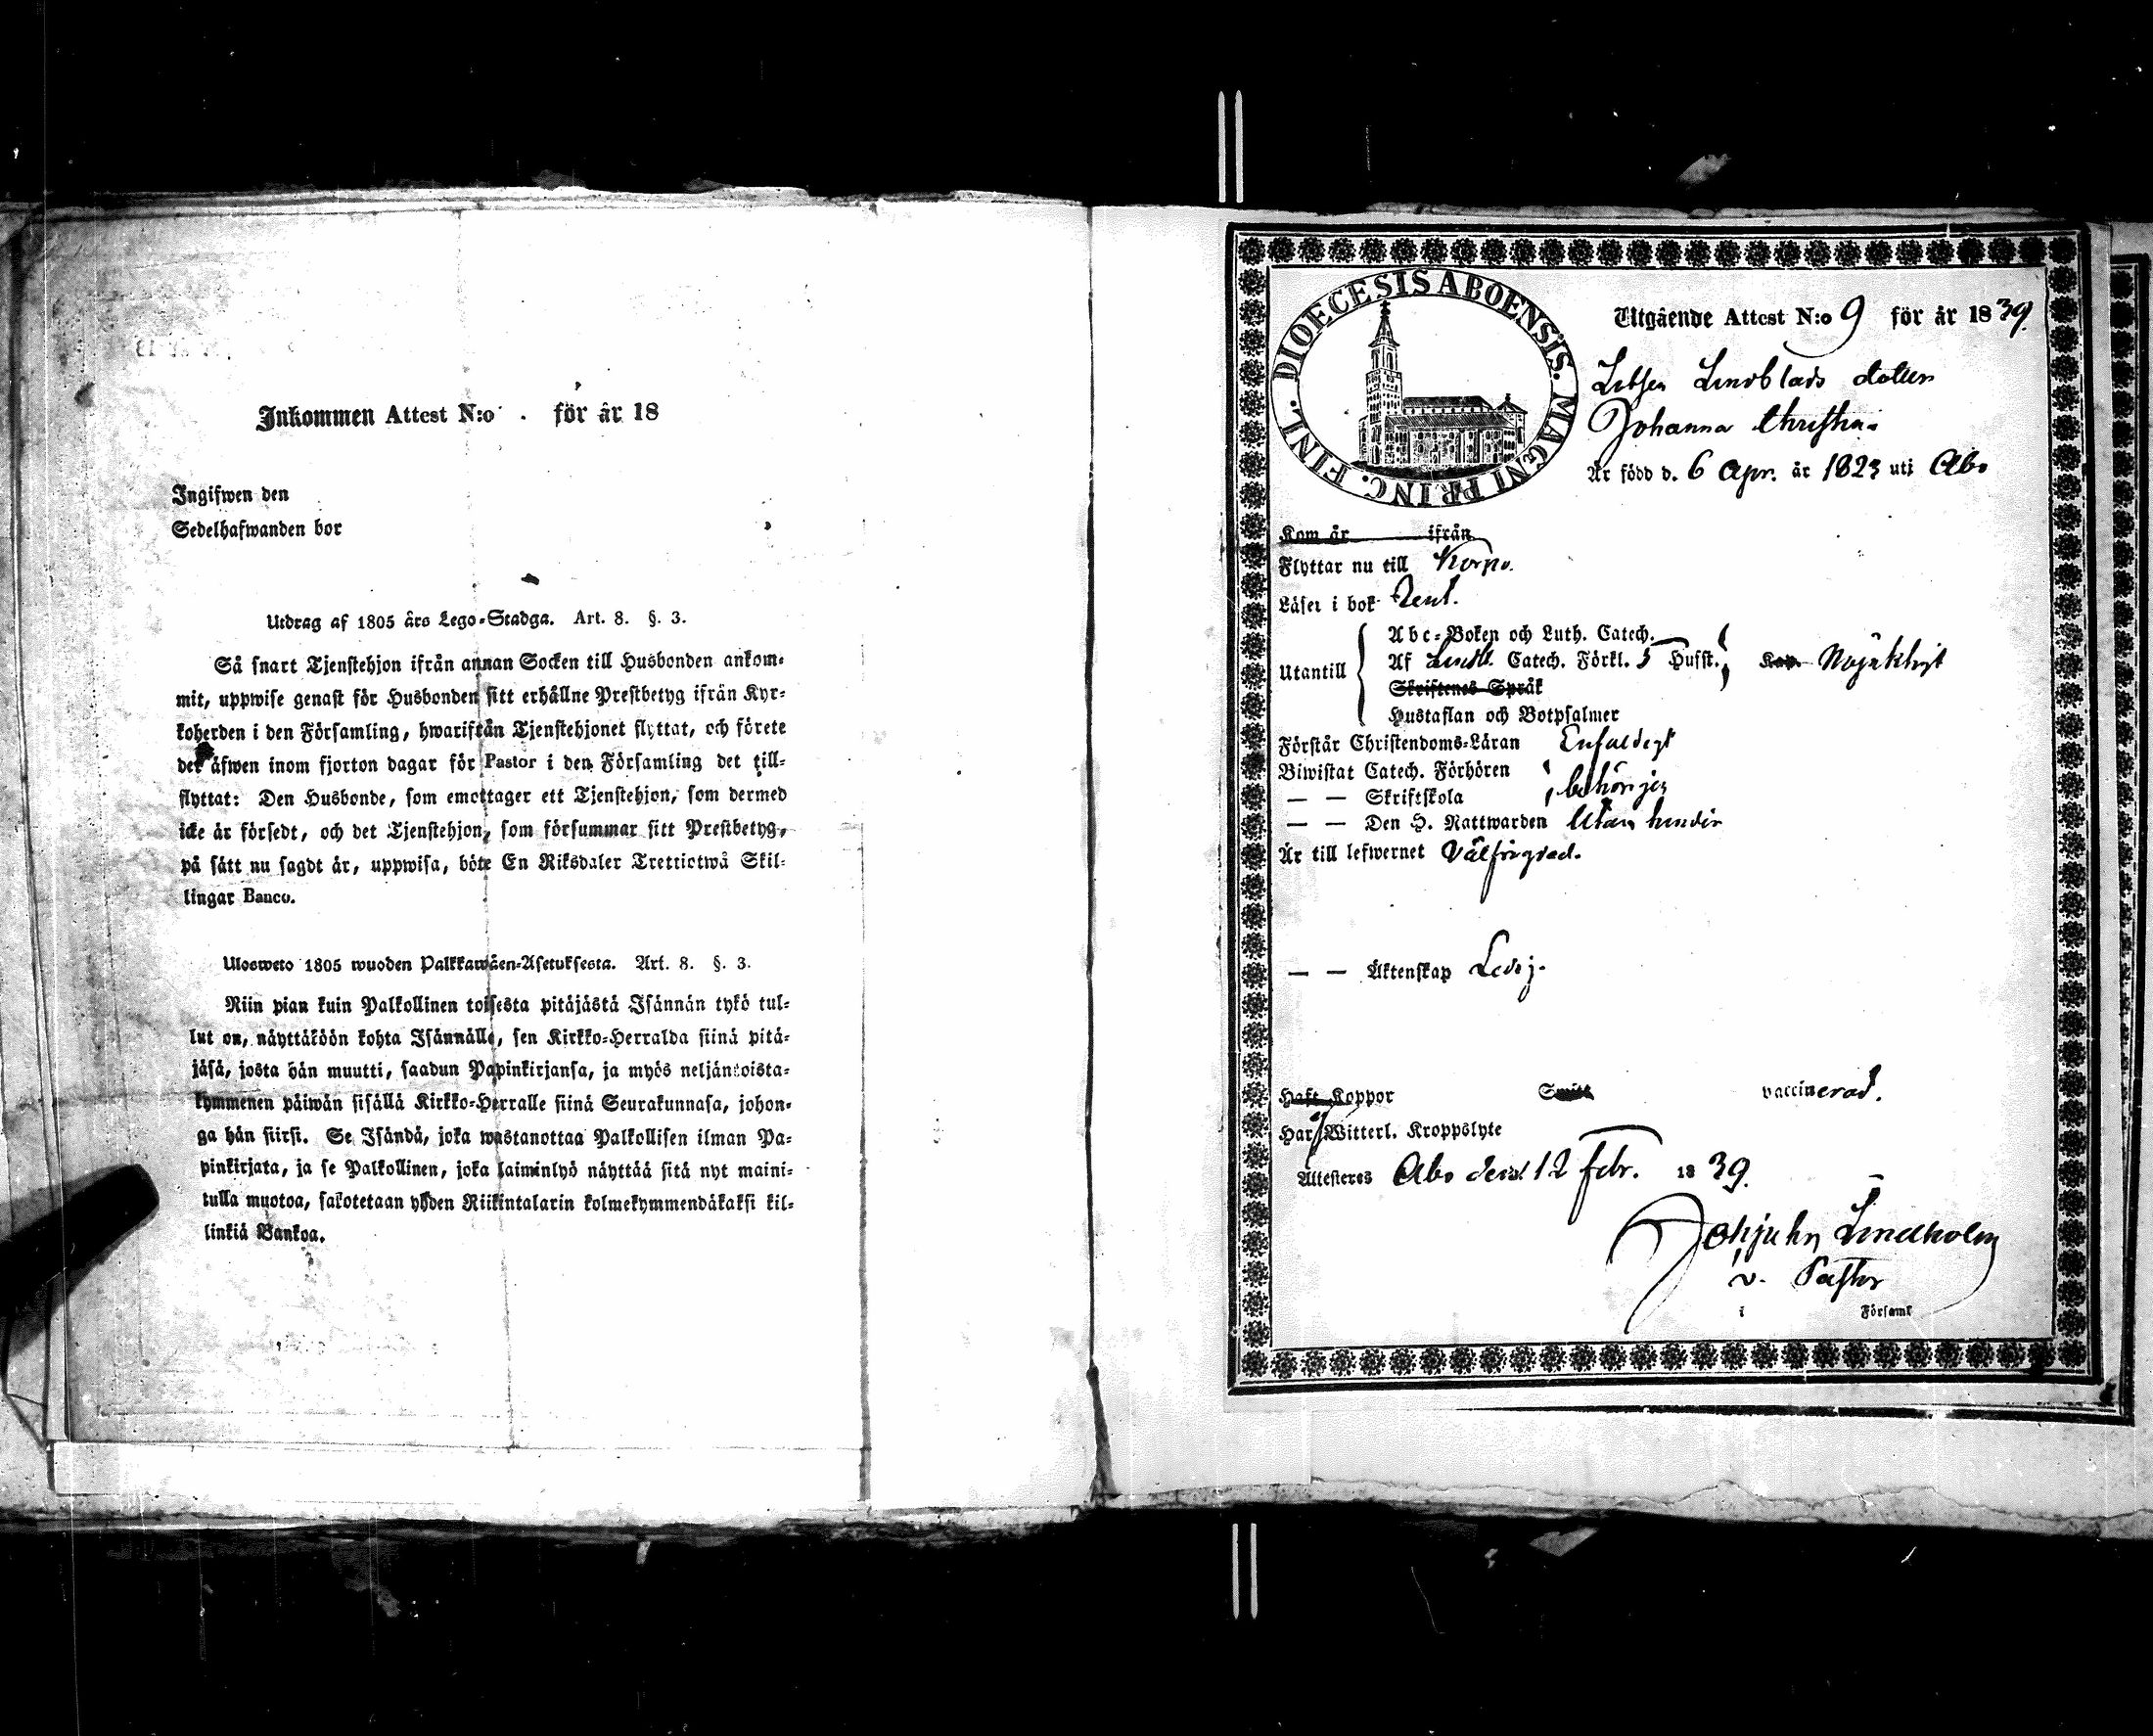 Inkommen Attest N:o . för år 18
Ingifwen den
Sedelhafwanden bor
Utdrag af 1805 års Lego-Stadga. Art. 8. §. 3.
Så snart Tjenstehjon ifrån annan Socken till Husbonden ankom-
mit, uppwise genast för Husbonden sitt erhållne Prestbetyg ifrån Kyr-
koherden i den Församling, hwarifrån Tjenstehjonet flyttat, och förete
det äfwen inom fjorton dagar för Pastor i den Församling det till-
flyttat: Den Husbonde, som emottager ett Tjenstehjon, som dermed
icke är försedt, och det Tjenstehjon, som försummar sitt Prestbetyg,
på sätt nu sagdt är, uppwisa, böte En Riksdaler Trettiotwå Skil-
lingar Banco.
Ulosweto 1805 wuoden Palkkawäen-Asetuksesta. Art. 8. §. 3.
Niin pian kuin Palkollinen toisesta pitäjästä Isännän tykö tul-
lut on, näyttäköön kohta Isännälle, sen Kirkko-Herralda siinä pitä-
jäsä, josta hän muutti, saadun Papinkirjansa, ja myös neljäntoista-
kymmenen päiwän sisällä Kirkko-Herralle siinä Seurakunnasa, johon-
ga hän siirsi. Se Isändä, joka wastanottaa Palkollisen ilman Pa-
pinkirjata, ja se Palkollinen, joka laiminlyö näyttää sitä nyt maini-
tulla muotoa, sakotetaan yhden Riikintalarin kolmekymmendäkaksi kil-
linkiä Bankoa.
DIOECESIS ABOENSIS. MAGNI PRINC. FINL.
Utgående Attest N:o 9 för år 1839.
Lindblads dotter
Johanna Christina
Är född d. 6 Apr. år 1823 uti Åbo
Kom år ifrån
Flyttar nu till Korpo.
Läser i bok Rent.
Utantill
Abc-Boken och Luth. Catech.
Af Lindb. Catech. Förkl. 5 Hufst. Nöjaktigt
Skriftenes Språk
Hustaflan och Botpsalmer
Förstår Christendoms-Läran Enfaldigt
Biwistat Catech. Förhören
— — Skriftskola behörigen
— — Den H. Nattwarden Utan hinder
Är till lefwernet Välfrägdad.
— — Äktenskap Ledig.
Haft Koppor Smitt vaccinerad.
Har ej Witterl. Kroppslyte
Attesteres Åbo den 12 Febr. 1839.
Lindholm
v. Pastor
i Församl